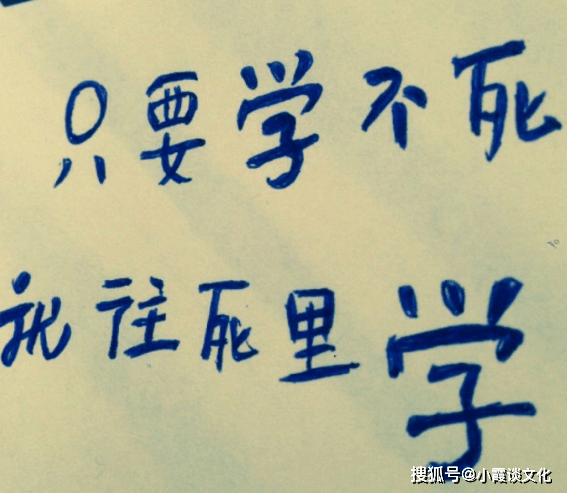 只要学不死
就往死里学
搜狐号@小霞谈文化